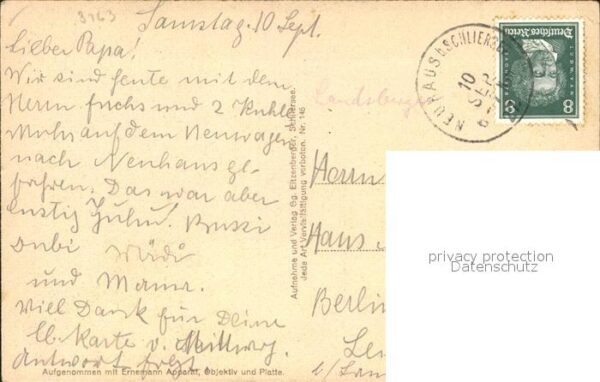 3163
Samstag. 10 Sept.
Lieber Papa!
Wir sind heute mit dem
Herrn Fuchs und 2
auf dem
nach Neuhaus ge-
fahren. Das war aber
lustig
Bubi
und Mama.
Viel Dank für Deine
lb. Karte v. Mittwog.
Antwort folgt.
Aufgenommen mit Ernemann Apparat, Objektiv und Platte.
Aufnahme und Verlag Sg. Eitzenberger, Schliersee.
Jede Art Vervielfältigung verboten. Nr. 146
Landsberger
NEUHAUS b. SCHLIERS
10
SEP
Deutsches Reich
8 8
Herrn
Hans
Berlin
privacy protection
Datenschutz